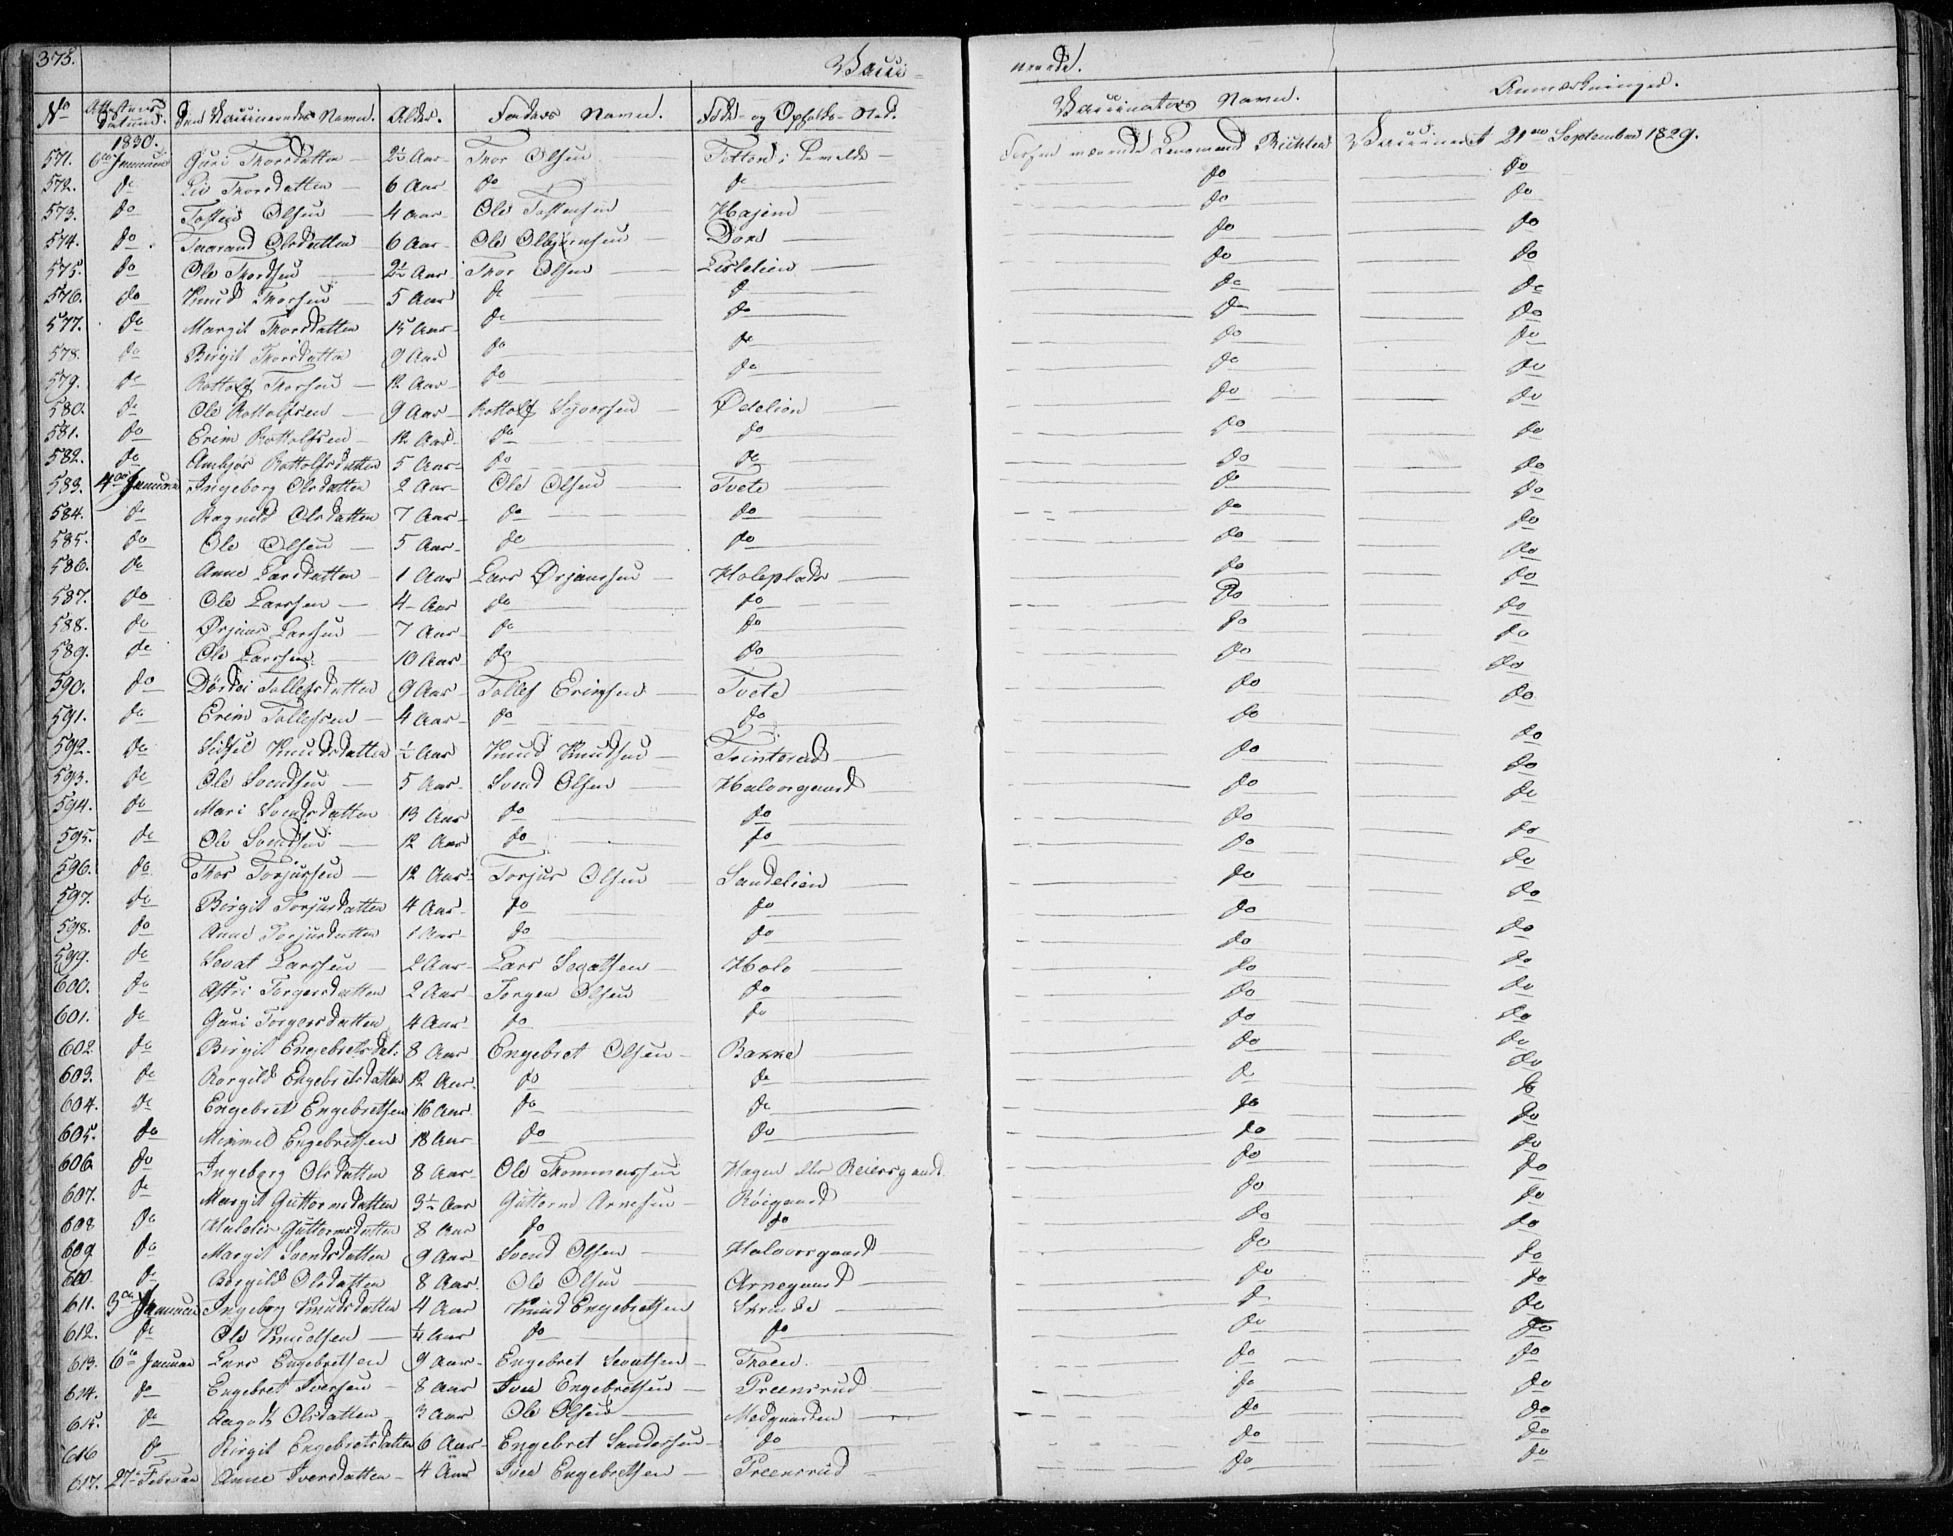 375. Vacci- nerede.
No Attestens Datum. Den Vaccineredes Navn. Alder. Faderens Navn. Føde- og Opholds-Sted. Vaccinateurs Navn. Anmærkninger.
1830.
571. 6te Januari Guri Thorsdatter 2½ Aar Thor Olsen Lensmand Vaccineret 21de September 1829.
572. do Liv Thorsdatter 6 Aar do do do do
573. do Tosten Olsen 4 Aar Ole Tostensen Hajem do do
574. do Olsdatter 6 Aar Ole Olbjørnsen Dokt do do
575. do Ole Thordsen 2½ Aar Thor Olsen Lislelien do do
576. do Knud Thorsen 5 Aar do do do do
577. do Margit Thorsdatter 15 Aar do do do do
578. do Birgit Thorsdatter 9 Aar do do do do
579. do Rottolf Thorsen 12 Aar do do do do
580. do Ole Rottolfsen 9 Aar Rottolf Syversen Ødelien do do
581. do Erim Rottolfsen 12 Aar do do do do
582. do Ambjør Rottolfsdatter 5 Aar do do do do
583. 4de Januari Ingeborg Olsdatter 2 Aar Ole Olsen Tvete do do
584. do Ragnild Olsdatter 7 Aar do do do do
585. do Ole Olsen 5 Aar do do do do
586. do Anne Larsdatter 1 Aar Lars Ørjansen Holeplads do do
587. do Ole Larssen 4 Aar do do do do
588. do Ørjans Larssen 7 Aar do do do do
589. do Ole Larssen 10 Aar do do do do
590. do Dordei Tollefsdatter 9 Aar Tollef Erimsen Tvete do do
591. do Erim Tollefsen 4 Aar do do do do
592. do Sidsel Knudsdatter ½ Aar Knud Knudsen Trinterud do do
593. do Ole Svendsen 5 Aar Svend Olsen Halvorgaard do do
594. do Mari Svendsdatter 13 Aar do do do do
595. do Ole Svendsen 12 Aar do do do do
596. do Thor Torjursen 12 Aar Torjur Olsen Sandelien do do
597. do Birgit Torjursdatter 4 Aar do do do do
598. do Anne Torjursdatter 1 Aar do do do do
599. do Sevat Larssen 2 Aar Lars Segatsen Hole do do
600. do Astri Torgersdatter 2 Aar Torger Olsen do do do
601. do Guri Torgersdatter 4 Aar do do do do
602. do Birgit Engebretsdat: 8 Aar Engebret Olsen Bakke do do
603. do Borgild Engebretsdatter 12 Aar. do do do do
604. do Engebret Engebretsen 16 Aar do do do do
605. do Mimmel Engebretsen 18 Aar do do do do
606. do Ingeborg Olsdatter 8 Aar Ole Thommessen Hagen eller Reiersgaard do do
607. do Margit Guttormsdatter 3½ Aar Guttorm Arnesen Röigaard do do
608. do Guttormsdatter 8 Aar do do do do
609. do Margit Svendsdatter 9 Aar Svend Olsen Halvorsgaard do do
610. do Borgild Olsdatter 8 Aar Ole Olsen Arnegaard do do
611. 3de Januari Ingeborg Knudsdatter 4 Aar Knud Engebretsen Skrinde do do
612. do Ole Knudsen ¼ Aar do do do do
613. 6te Januar Lars Engebretsen 9 Aar Engebret Sevatsen Thoen. do do
614. do Engebret Iversen 8 Aar Iver Engebretsen Preensrud do do
615. do Aagodt Olsdatter 3 Aar Ole Olsen Medgaarden do do
616 do Birgit Engebretsdatter 6 Aar Engebret Sandersen do do do
617. 27de Februar Anne Iversdatter 4 Aar Iver Engebretsen Preensrud do do